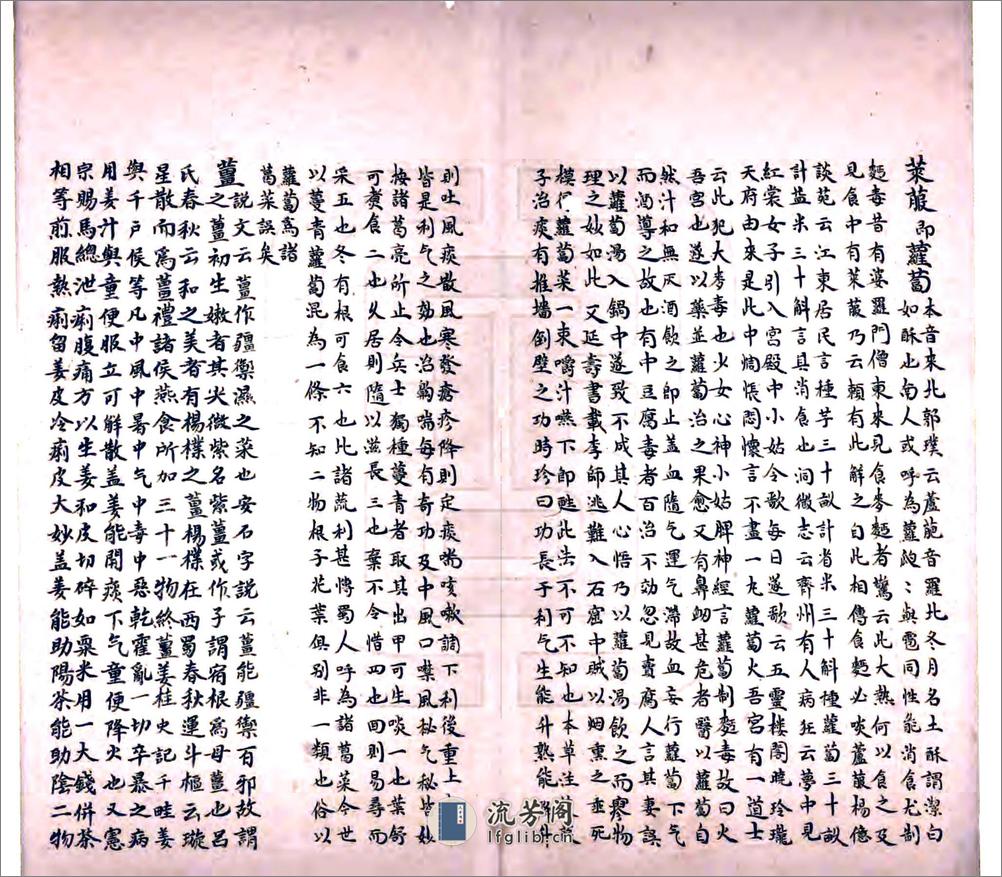 萊菔即蘿蔔本音來北郭璞云蘆萉音羅北冬月名土酥謂潔白
如酥也南人或呼為蘿瓝瓝與雹同性能消食尤制
麵毒昔有婆羅門僧東來見食麥麵者驚云此大熱何以食之及
見食中有萊菔乃云賴有此解之自此相傳食麵必啖蘆菔楊億
談苑云江東居民言種芋三十畝計省米三十斛種蘿蔔三十畝
計益米三十斛言其消食也洞微志云齊州有人病狂云夢中見
紅裳女子引入宮殿中小姑令歌每日遂歌云五靈樓閣曉玲瓏
天府由來是此中惆悵悶懷言不盡一丸蘿蔔火吾宮有一道士
云此犯大麥毒也少女心神小姑脾神經言蘿蔔制麪毒故曰火
吾宮也遂以藥並蘿蔔治之果愈又有鼻衂甚危者醫以蘿蔔自
然汁和無灰酒飲之即止蓋血隨气運气滯故血妄行蘿蔔下气
而酒導之故也有中豆腐毒者百治不効忽見賣腐人言其妻誤
以蘿蔔湯入鍋中遂致不成其人心悟乃以蘿蔔湯飲之而瘳物
理之妙如此又延壽書載李師逃難入石窟中賊以烟熏之垂死
摸得蘿蔔菜一束嚼汁嚥下即甦此法不可不知也本草注
子治痰有推墻倒壁之功時珍曰功長于利气生能升熟能升
則吐風痰散風寒發瘡疹降則定痰喘咳嗽調下利後重上
皆是利气之効也治齁喘每有奇功及中風口噤風秘气秘皆妙
按諸葛亮所止令兵士獨種蔓青者取其出甲可生啖一也葉舒
可煮食二也久居則隨以滋長三也棄不令惜四也回則易尋而
采五也冬有根可食六也比諸蔬利甚慱蜀人呼為諸葛菜今世
以蔓青蘿蔔混為一條不知二物根子花葉俱别非一類也俗以
蘿蔔為諸
葛菜誤矣
薑說文云薑作疆禦濕之菜也安石字說云薑能疆禦百邪故謂
之薑初生嫩者其尖微紫名紫薑或作子謂宿根爲母薑也呂
氏春秋云和之美者有楊樸之薑楊樸在西蜀春秋運斗樞云璇
星散而爲薑禮諸侯燕食所加三十一物終薑桂史記千畦姜
與千戶侯等凡中風中暑中气中毒中惡乾霍亂一切卒暴之病
用姜汁與童便服立可解散蓋姜能開痰下气童便降火也又憲
宗賜馬總泄痢腹痛方以生姜和皮切碎如粟米用一大錢併茶
相等煎服熱痢留姜皮冷痢皮大妙蓋姜能助陽茶能助陰二物
流芳阁
lfglib.com